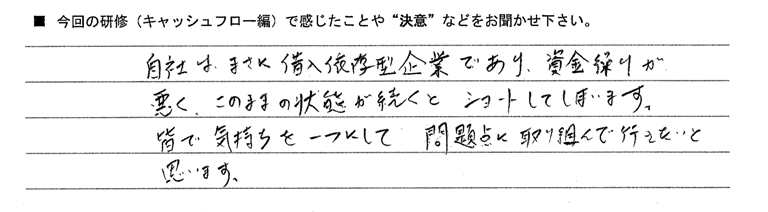 ■ 今回の研修（キャッシュフロー編）で感じたことや“決意”などをお聞かせ下さい。
自社は、まさに借入依存型企業であり、資金繰りが
悪く、このままの状態が続くとショートしてしまいます。
皆で気持ちを一つにして問題点に取り組んで行きたいと
思います。